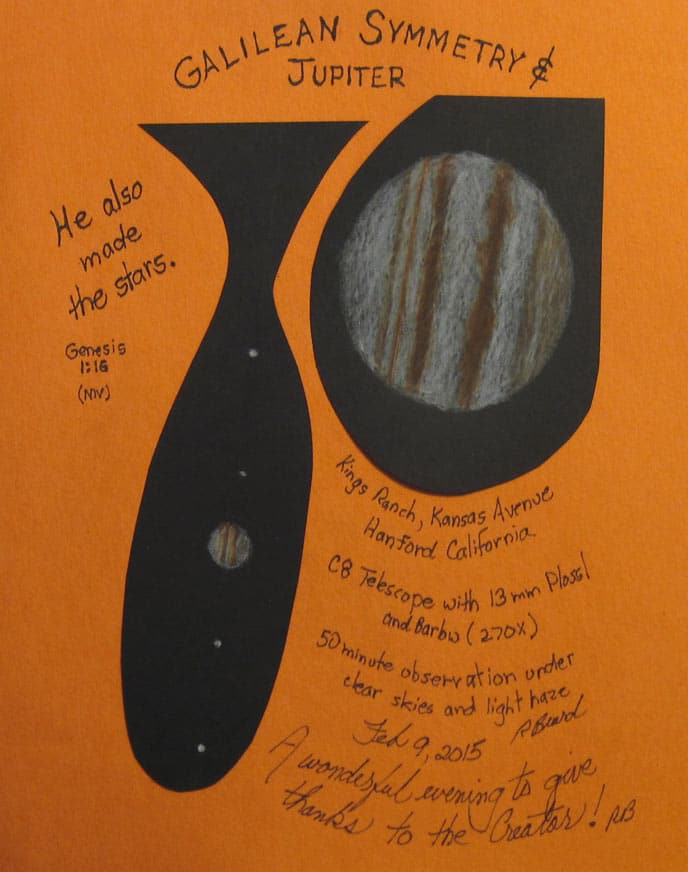 GALILEAN SYMMETRY &
JUPITER
He also
made
the stars.
Genesis
1:16
(NIV)
Kings Ranch, Kansas Avenue
Hanford California
C8 Telescope with 13mm Plossl
and Barlow (270X)
50 minute observation under
clear skies and light haze
Feb 9, 2015 R Beard
A wonderful evening to give
thanks to the Creator! RB